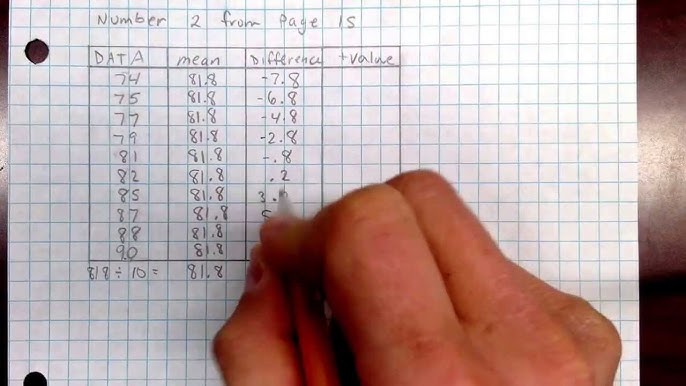 Number 2 from Page 15
DATA mean Difference +value
74 81.8 -7.8
75 81.8 -6.8
77 81.8 -4.8
79 81.8 -2.8
81 81.8 -.8
82 81.8 .2
85 81.8 3.
87 81.8 5
88 81.8
90 81.8
818 ÷ 10 = 81.8